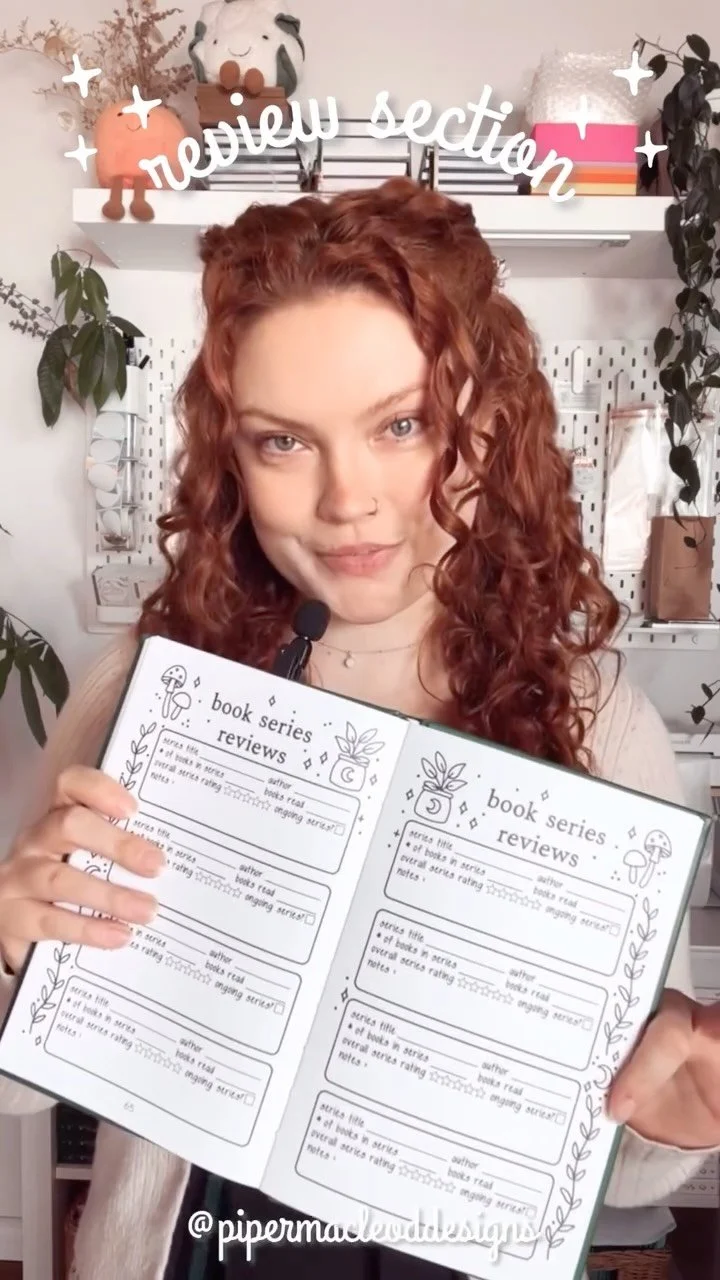 review section
book series
reviews
series title
# of books in series author
overall series rating books read
notes: ongoing series?
series title
of books in series author
overall series rating books read
ongoing series?
in series author
overall series rating books read
ongoing series?
series title
# of books in series author
overall series rating books read
notes: ongoing series?
65
book series
reviews
series title
# of books in series author
overall series rating books read
notes: ongoing series?
series title
# of books in series author
overall series rating books read
notes: ongoing series?
series title
# of books in series author
overall series rating books read
notes: ongoing series?
series title
# of books in series author
overall series rating books read
notes: ongoing series?
@pipermacleoddesigns